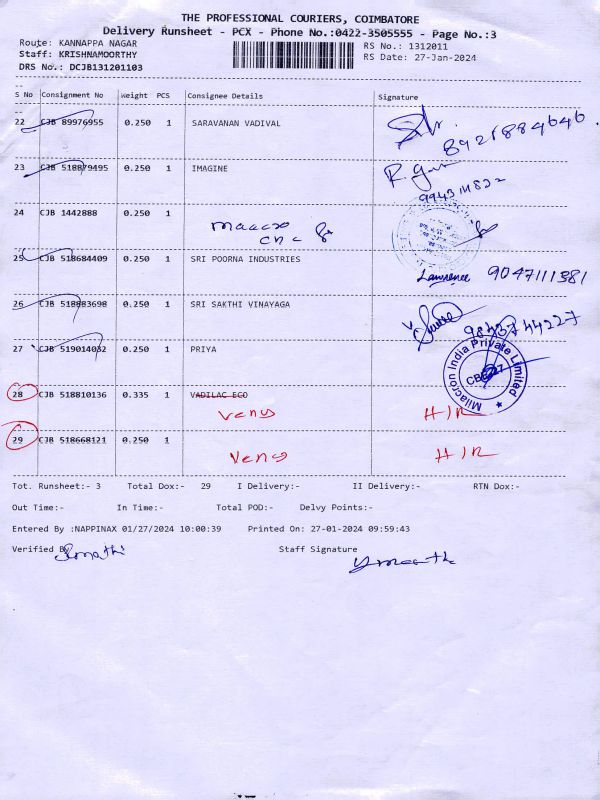 THE PROFESSIONAL COURIERS, COIMBATORE
Delivery Runsheet - PCX - Phone No.:0422-3505555 - Page No.:3
Route: KANNAPPA NAGAR
RS No.: 1312011
Staff: KRISHNAMOORTHY
RS Date: 27-Jan-2024
DRS No.: DCJB131201103
S No Consignment No Weight PCS Consignee Details Signature
22 CJB 89976955 0.250 1 SARAVANAN VADIVAL
8921884646
23 CJB 518879495 0.250 1 IMAGINE
24 CJB 1442888 0.250 1
25 CJB 518684409 0.250 1 SRI POORNA INDUSTRIES
Lawrence 9047111381
26 CJB 518883698 0.250 1 SRI SAKTHI VINAYAGA
9843744227
27 CJB 519014032 0.250 1 PRIYA
Milacron India Private Limited
28 CJB 518810136 0.335 1 VADILAC ECO
Venus H/R
29 CJB 518668121 0.250 1
Venus H/R
Tot. Runsheet:- 3 Total Dox:- 29 I Delivery:- II Delivery:- RTN Dox:-
Out Time:- In Time:- Total POD:- Delvy Points:-
Entered By :NAPPINAX 01/27/2024 10:00:39 Printed On: 27-01-2024 09:59:43
Verified By Staff Signature